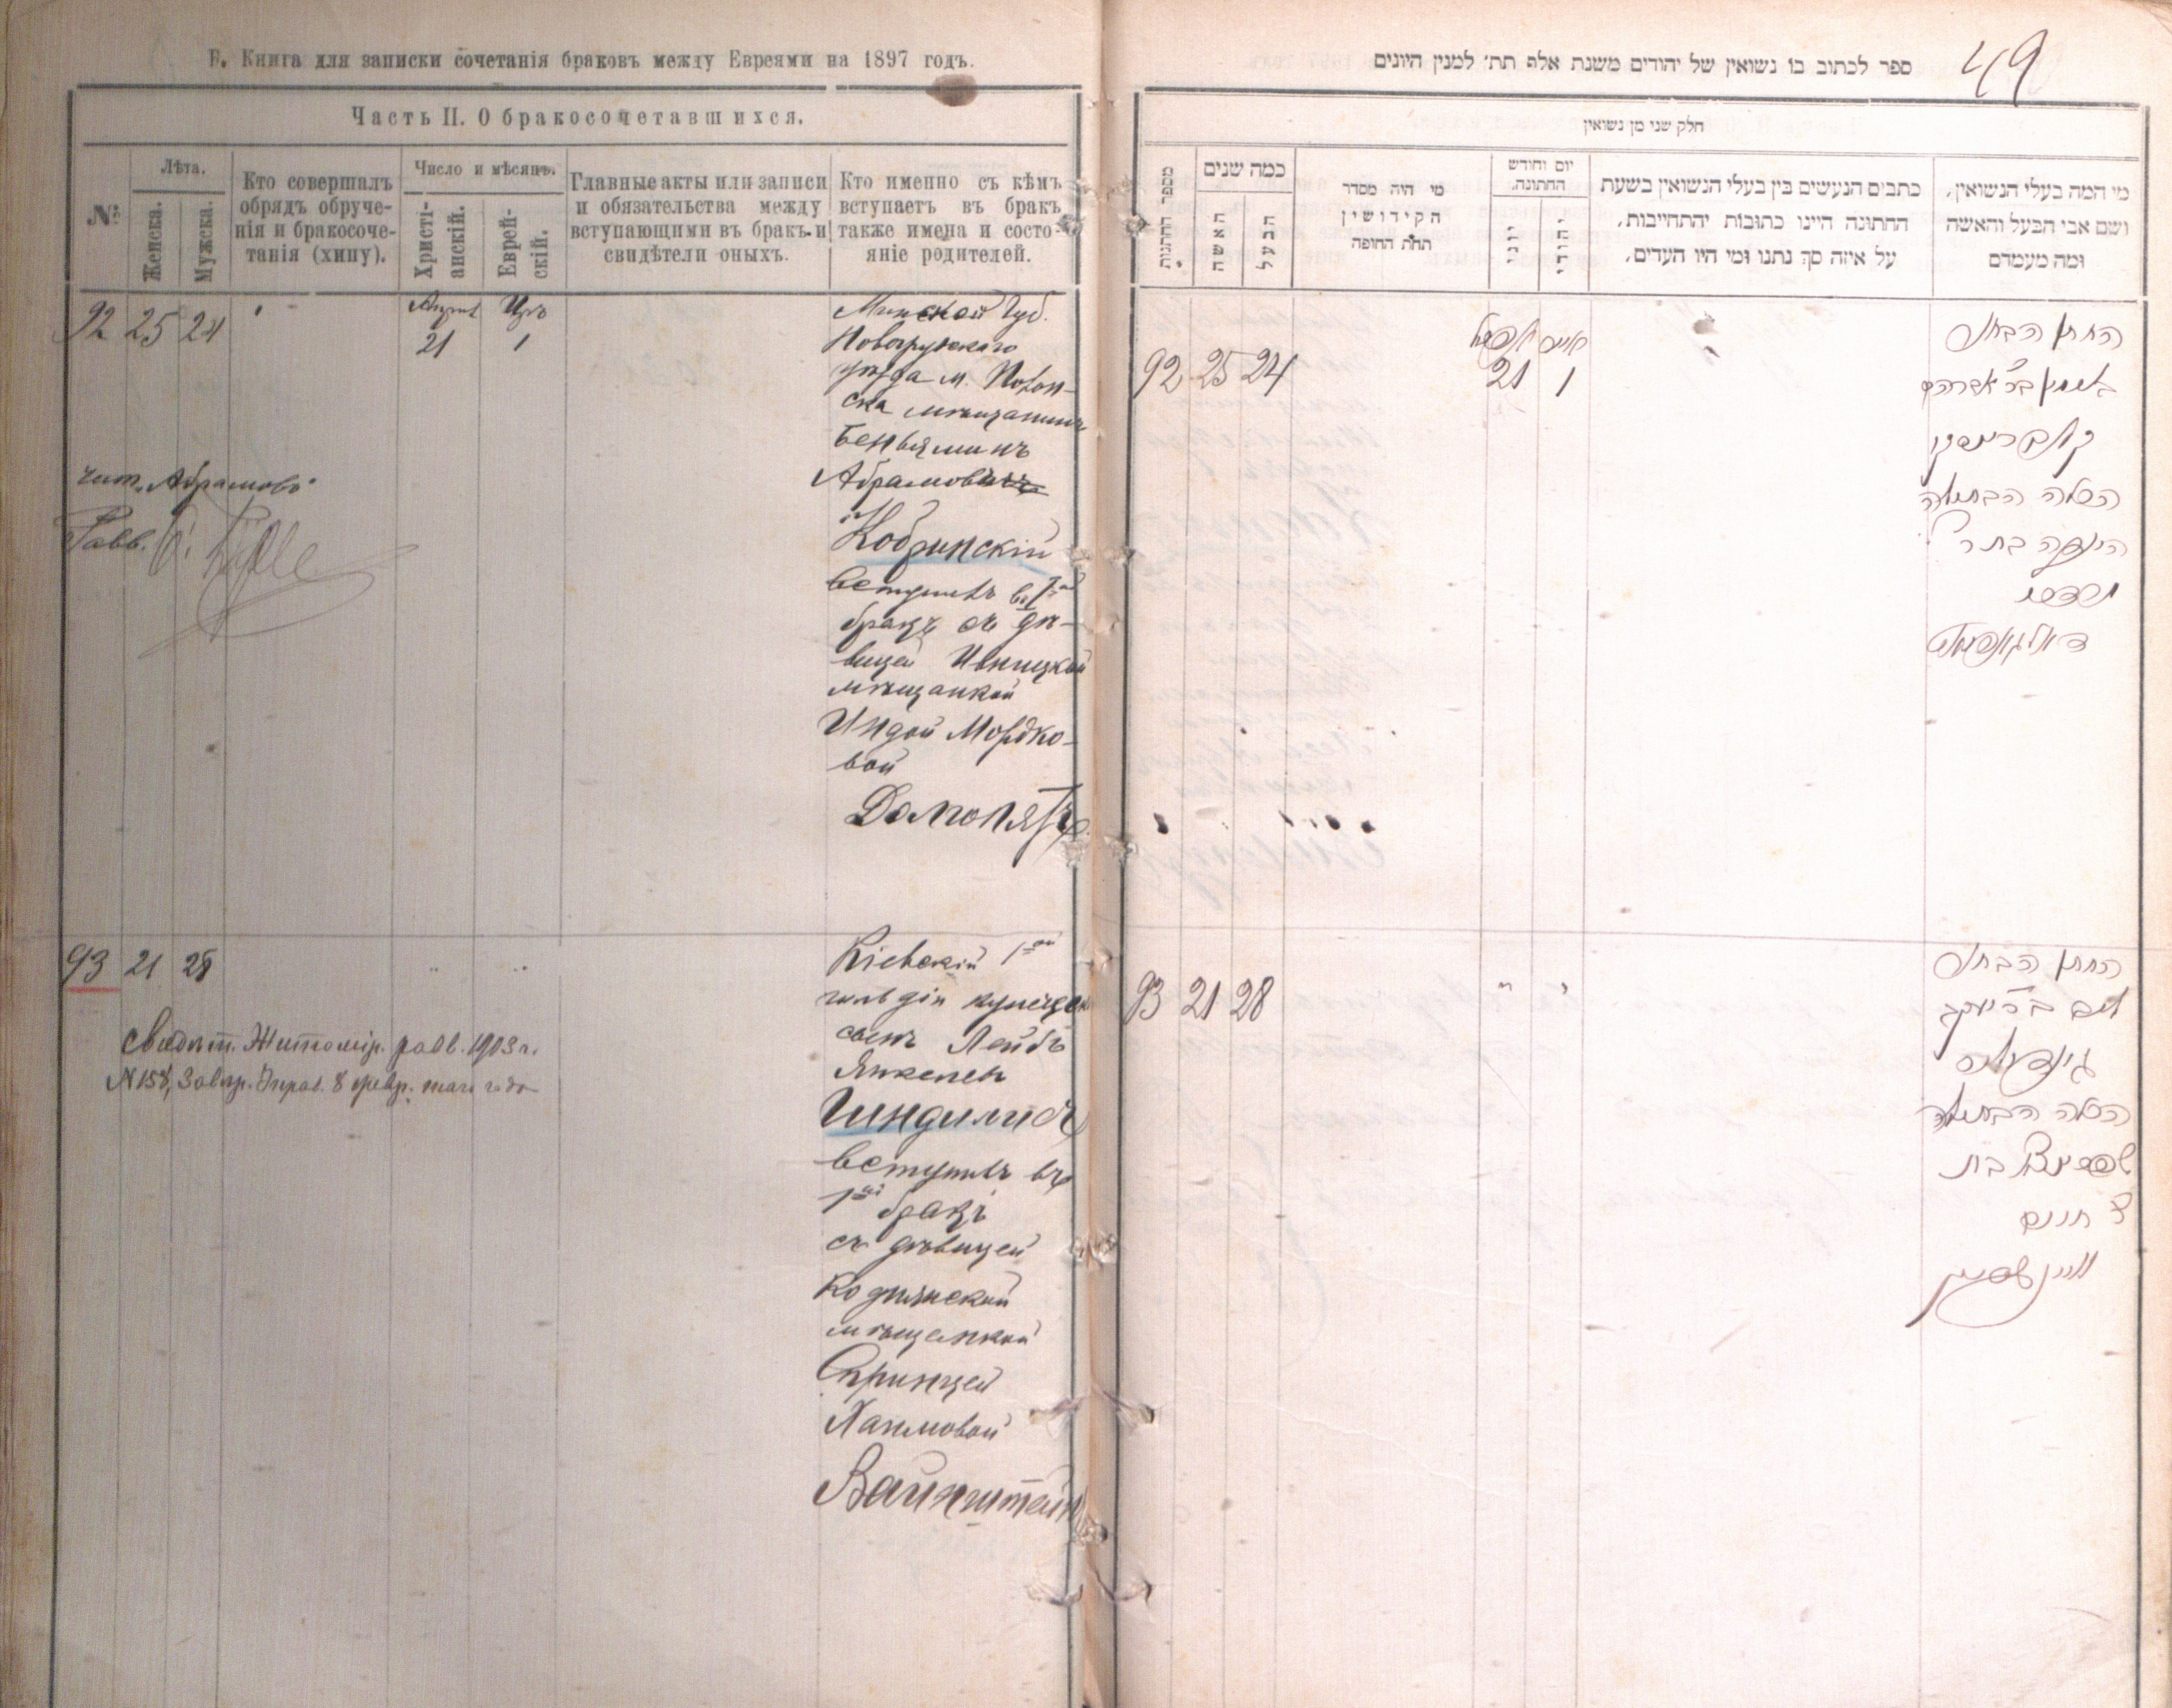 Б. Книга для записки сочетанія браковъ между Евреями на 1897 годъ.
Часть II. О бракосочетавшихся.
№
Лѣта.
Женска.
Мужска.
Кто совершалъ
обрядъ обруче-
нія и бракосоче-
танія (хипу).
Число и мѣсяцъ.
Христі-
анскій.
Еврей-
скій.
Главные акты или записи
и обязательства между
вступающими въ бракъ и
свидѣтели оныхъ.
Кто именно съ кѣмъ
вступаетъ въ бракъ
также имена и состо-
яніе родителей.
92 25 24
21 1
Минской Губ.
Новогрудскаго
уѣзда м.
мѣщанинъ
Беньяминъ
Абрамовичъ
Кобринскій
вступилъ въ 1ый
бракъ съ дѣ-
вицей Ивницкой
мѣщанкой
Индой Мордко-
вой
чит. „Абрамовъ"
Рабв.
93 21 28
Кіевскій 1ой
гильдіи купеческ
сынъ Лейбъ
Янкелев
Гиндилисъ
вступилъ въ
1ый бракъ
съ дѣвицей
Коднянской
мѣщанкой
Спринцей
Хаимовой
Вайнштейн
Свидѣт. Житомір. равв. 1903 г.
№ 158,
49
ספר לכתוב בו נשואין של יהודים משנת אלף תת׳ למנין היונים
חלק שני מן נשואין
מספר החתונות
כמה שנים
האשה
הבעל
מי היה מסדר
הקידושין
תחת החופה
יום וחודש
החתונה.
יוני
יהודי
כתבים הנעשים בין בעלי הנשואין בשעת
החתונה היינו כתובות יהתחייבות,
על איזה סך נתנו ומי היו העדים,
מי המה בעלי הנשואין,
ושם אבי הבעל והאשה
ומה מעמדם
92 25 24
21 1
החתן הבחור
בנימין בר׳ אברהם
קאברינסקי
הכלה הבתולה
הינדה בת ר׳
מרדכי
93 21 28
החתן הבחור
ליב בר׳ יעקב
גינדיליס
הכלה הבתולה
שפרינצא בת
ר׳ חיים
וויינשטיין